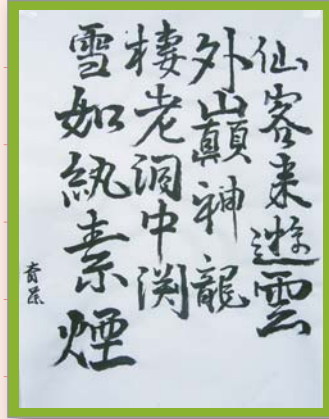 仙客来遊雲
外巓神龍
棲老洞中渕
雪如紈素煙